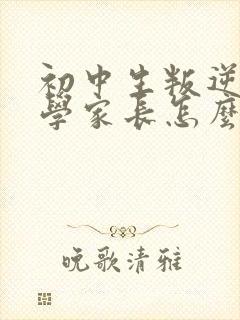 初中生叛逆
學家長怎麼
晚歌清雅